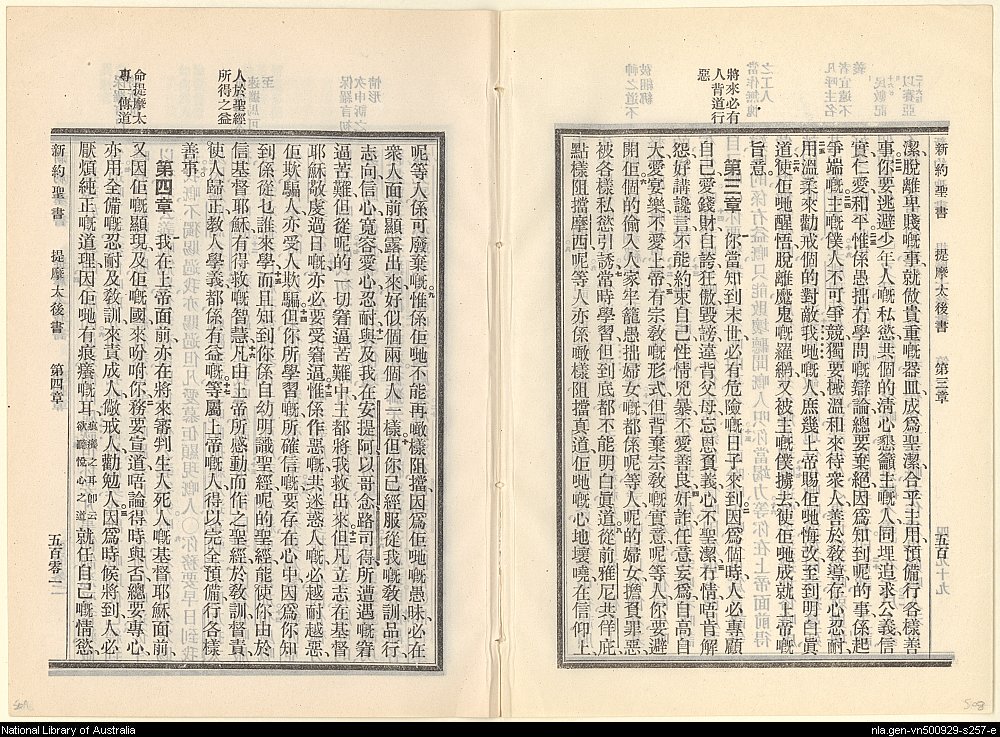 新約聖書 提摩太後書 第三章 四百九十九
潔脫離卑賤嘅事就做貴重嘅器皿成爲聖潔合乎主用預備行各樣善
事你要逃避少年人嘅私慾共個的淸心懇籲主嘅人同埋追求公義信
實仁愛和平惟係愚拙冇學問嘅辯論總要棄絕因爲知到呢的事係起
爭端嘅主嘅僕人不可爭競獨要械溫和來待衆人善於敎導存心忍耐
用溫柔來勸戒個的對敵我哋嘅人庶幾上帝賜佢哋悔改至到明白眞
道使佢哋醒悟脫離魔鬼嘅羅網又被主嘅僕擄去使佢哋成就上帝嘅
旨意
將來必有
人背道行
惡
第三章 你當知到末世必有危險嘅日子來到因爲個時人必專顧
自己愛錢財自誇狂傲毀謗違背父母忘恩負義心不聖潔冇情唔肯解
怨好講讒言不能約束自己性情兇暴不愛善良奸詐任意妄爲自高自
大愛宴樂不愛上帝有宗敎嘅形式但背棄宗敎嘅實意呢等人你要避
開佢個的偷入人家牢籠愚拙婦女嘅都係呢等人呢的婦女擔負罪惡
被各樣私慾引誘當時學習但到底都不能明白眞道從前雅尼共佯庇
點樣阻擋摩西呢等人亦係噉樣阻擋眞道佢哋嘅心地壞嘵在信仰上
呢等人係可廢棄嘅惟係佢哋不能再噉樣阻擋因爲佢哋嘅愚昧必在
衆人面前顯露出來好似個兩個人一樣但你已經服從我嘅敎訓品行
志向信心寬容愛心忍耐與及我在安提阿以哥念路司得所遭遇嘅窘
逼苦難但從呢的一切窘逼苦難中主都將我救出來但凡立志在基督
耶穌敬虔過日嘅亦必要受窘逼惟係作惡嘅共迷惑人嘅必越耐越惡
佢欺騙人亦受人欺騙但你所學習嘅所確信嘅要存在心中因爲你知
到係從乜誰來學而且知到你係自幼明識聖經呢的聖經能使你由於
人於聖經
所得之益
信基督耶穌有得救嘅智慧凡由上帝所感動而作之聖經於敎訓督責
使人歸正敎人學義都係有益嘅等屬上帝嘅人得以完全預備行各樣
善事
命提摩太
專一傳道
第四章 我在上帝面前亦在將來審判生人死人嘅基督耶穌面前
又因佢嘅顯現及佢嘅國來吩咐你務要宣道唔論得時與否總要專心
亦用全備嘅忍耐及敎訓來責成人儆戒人勸勉人因爲時候將到人必
厭煩純正嘅道理因佢哋有痕癢嘅耳痕癢之耳卽云欲聽悅心之道就任自己嘅情慾
新約聖書 提摩太後書 第四章 五百零二
National Library of Australia
nla.gen-vn500929-s257-e